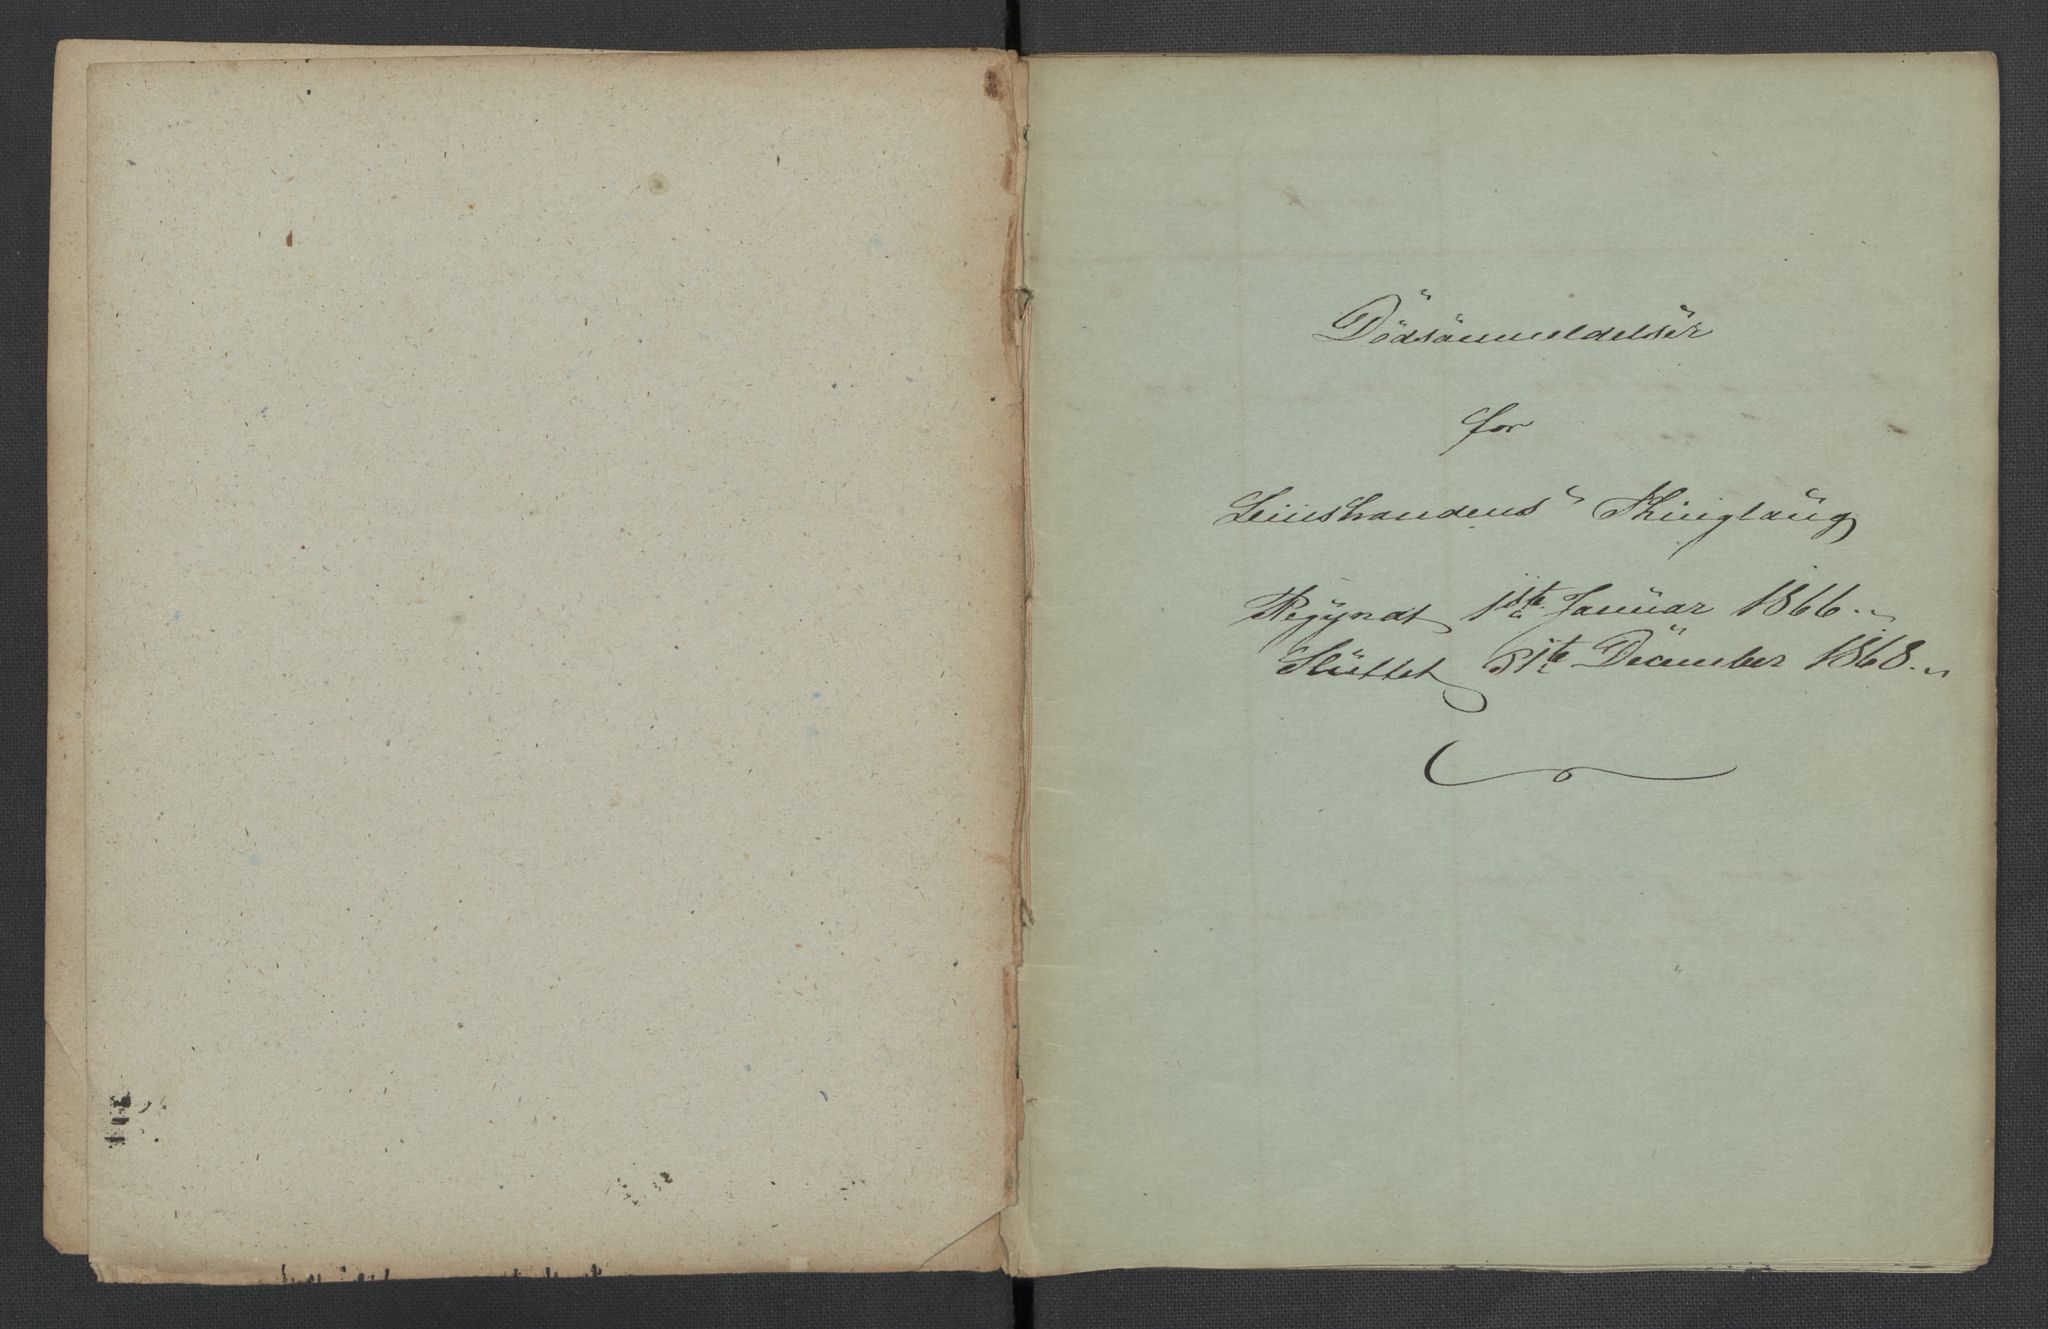 Dödsanmeldelser
for
Leinstrandens Thinglaug
Begyndt 1ste Januar 1866.
Sluttet 31te December 1868.